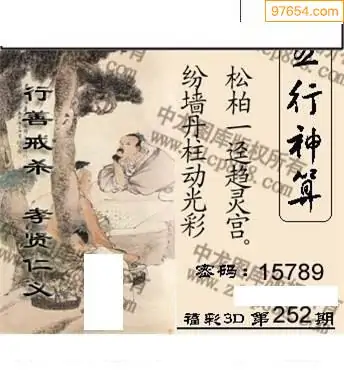 97654.com
五行神算
松柏一迳趋灵宫。
纷墙丹柱动光彩
行善戒杀 孝贤仁义
密码：15789
福彩3D 第252期
中龙图库版权所有